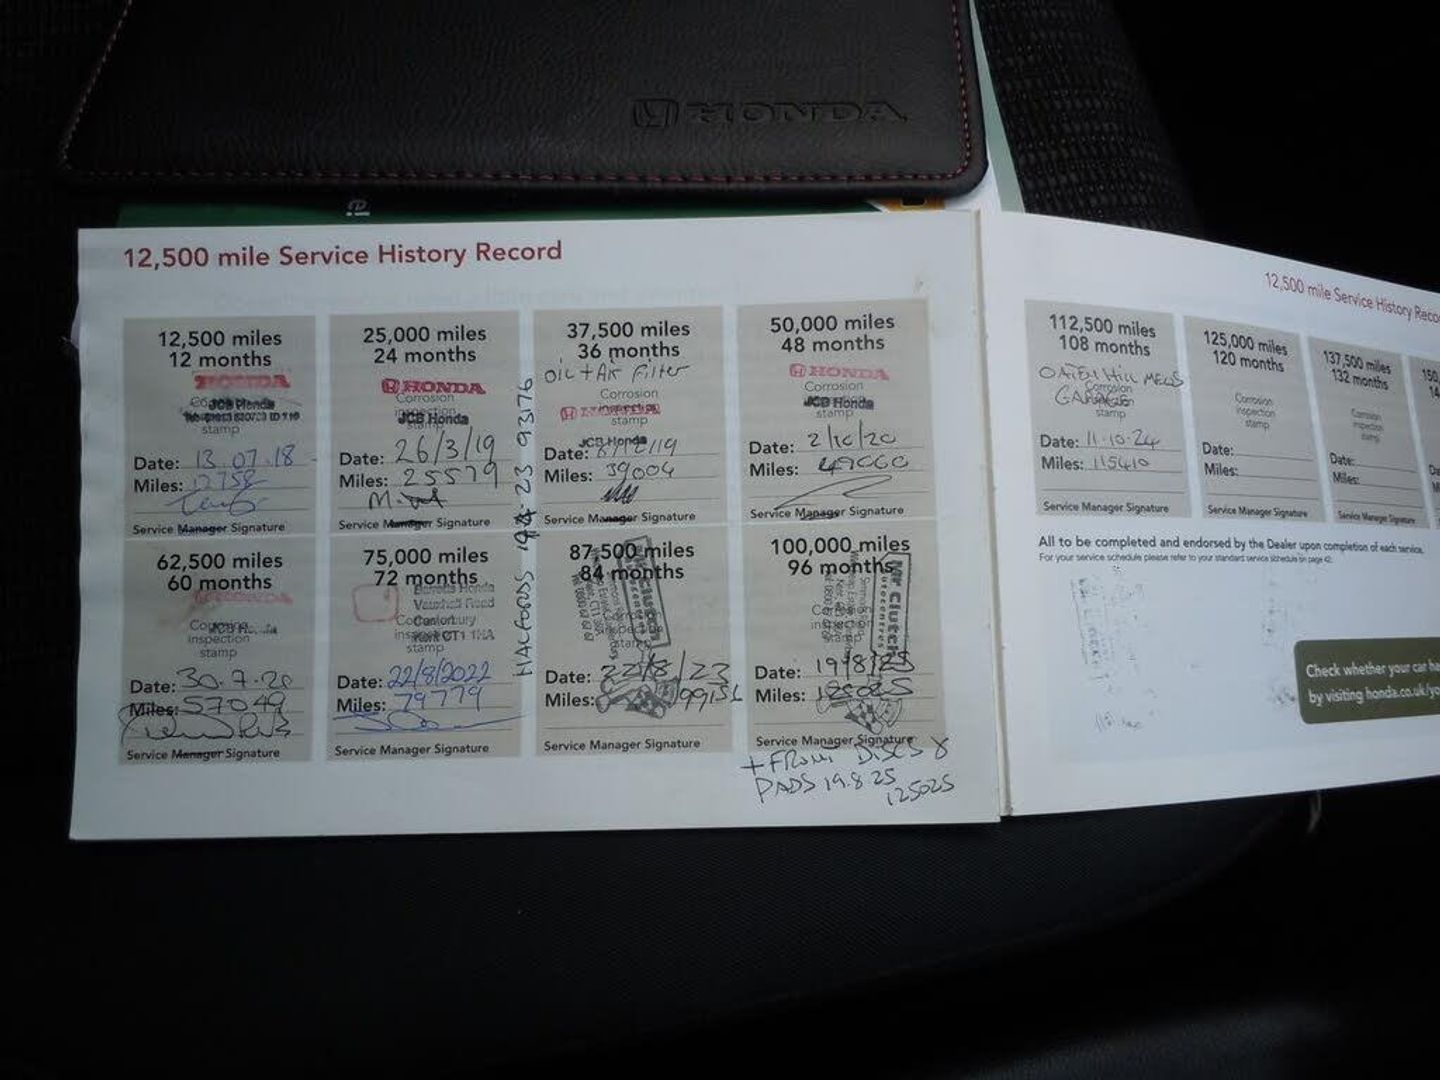 HONDA
12,500 mile Service History Record
12,500 miles
12 months
HONDA
JCB Honda
stamp
Date: 13.07.18
Miles: 12758
Service Manager Signature
25,000 miles
24 months
HONDA
Corrosion
inspection
JCB Honda
stamp
Date: 26/3/19
Miles: 25579
Service Manager Signature
HALFORDS
23 93176
37,500 miles
36 months
OIL + AIR Filter
Corrosion
inspection
JCB Honda
Date: 8/12/19
Miles: 39004
Service Manager Signature
50,000 miles
48 months
HONDA
Corrosion
JCB Honda
stamp
Date: 2/10/20
Miles:
Service Manager Signature
62,500 miles
60 months
HONDA
Corrosion
inspection
JCB Honda
stamp
Date: 30.7.
Miles: 57049
Service Manager Signature
75,000 miles
72 months
Barretts Honda
Vauxhall Road
Canterbury
Kent CT1 1HA
Date: 22/8/2022
Miles: 79779
Service Manager Signature
87,500 miles
84 months
Mr Clutch
Autocentres
Date: 22/8/23
Miles:
Service Manager Signature
100,000 miles
96 months
Mr Clutch
Autocentres
Date: 19/8/25
Miles: 125025
Service Manager Signature
+ FRONT DISCS &
PADS 19.8.25
125025
12,500 mile Service History Reco
112,500 miles
108 months
OATEN HILL MEWS
GARAGE
Corrosion
stamp
Date: 11-10-24
Miles: 115410
Service Manager Signature
125,000 miles
120 months
Corrosion
inspection
stamp
Date:
Miles:
Service Manager Signature
137,500 miles
132 months
Corrosion
inspection
stamp
Date:
Miles:
Service Manager Signature
150,
14
All to be completed and endorsed by the Dealer upon completion of each service.
For your service schedule please refer to your standard service schedule on page 42.
Check whether your car ha
by visiting honda.co.uk/yo